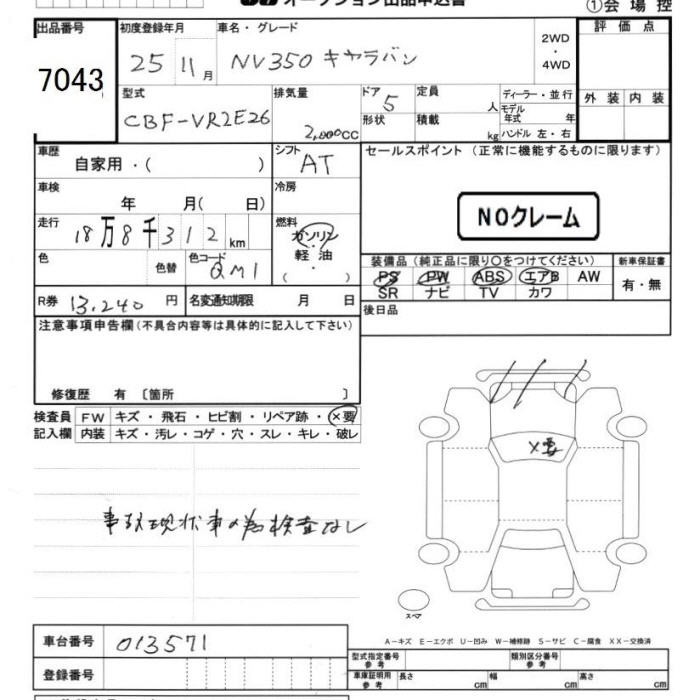 オークション出品申込書
①会場控
出品番号
7043
初度登録年月
25 11月
車名・グレード
NV350 キャラバン
2WD
・
4WD
評価点
外装 内装
型式
CBF-VR2E26
排気量
2,000CC
ドア
5
形状
定員
人
積載
kg
ディーラー・並行
モデル
年式 年
ハンドル 左・右
車歴
自家用・( )
シフト
AT
セールスポイント(正常に機能するものに限ります)
NOクレーム
車検
年 月( 日)
冷房
走行
18万8千312km
燃料
ガソリン
・
軽油
( ・ )
色
色替
色コード
QM1
装備品(純正品に限り○をつけてください)
PS PW ABS エアB AW
SR ナビ TV カワ
新車保証書
有・無
R券 13,240 円
名変通知期限 月 日
後日品
注意事項申告欄(不具合内容等は具体的に記入して下さい)
修復歴 有 〔箇所 〕
検査員
記入欄
FW キズ・飛石・ヒビ割・リペア跡・×要
内装 キズ・汚レ・コゲ・穴・スレ・キレ・破レ
×要
事故現状車の為検査なし
スペア
A-キズ E-エクボ U-凹み W-補修跡 S-サビ C-腐食 XX-交換済
車台番号 013571
登録番号
型式指定番号
参考
類別区分番号
参考
車庫証明用
参考
長さ cm
幅 cm
高さ cm